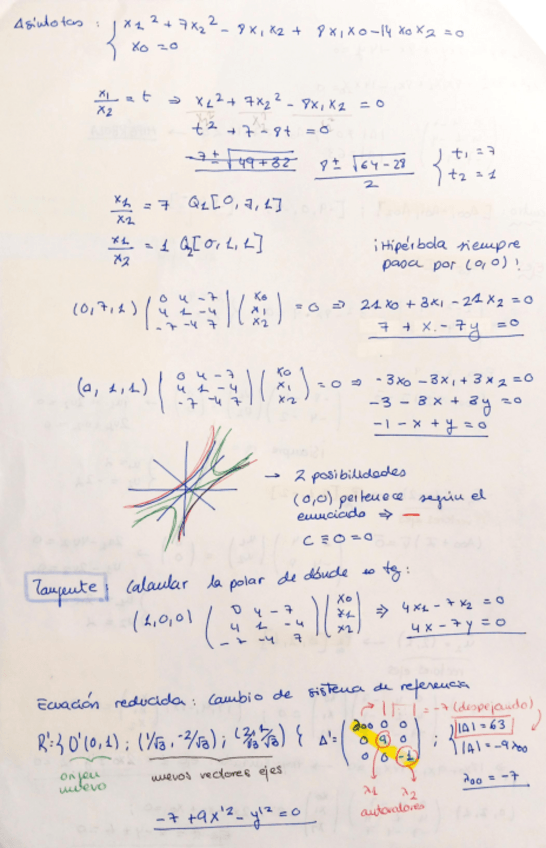 Asíntotas : { x1² + 7x2² - 8x1x2 + 8x1x0 - 14x0x2 = 0
x0 = 0
x1/x2 = t ⇒ x1² + 7x2² - 8x1x2 = 0
t² + 7 - 8t = 0
-7 ± √49+32    8 ± √64-28 / 2 { t1 = 7
t2 = 1
x1/x2 = 7 Q1[0,7,1]
x1/x2 = 1 Q2[0,1,1]
¡Hipérbola siempre
pasa por (0,0)!
(0,7,1) ( 0 4 -7 ) ( x0 )
( 4 1 -4 ) ( x1 ) = 0 ⇒ 21x0 + 3x1 - 21x2 = 0
( -7 -4 7 ) ( x2 )
7 + x - 7y = 0
(0,1,1) ( 0 4 -7 ) ( x0 )
( 4 1 -4 ) ( x1 ) = 0 ⇒ -3x0 - 3x1 + 3x2 = 0
( -7 -4 7 ) ( x2 )
-3 - 3x + 3y = 0
-1 - x + y = 0
→ 2 posibilidades
(0,0) pertenece según el
enunciado ⇒ —
C ≡ 0 = 0
Tangente : Calcular la polar de dónde es tg:
(1,0,0) ( 0 4 -7 ) ( x0 )
( 4 1 -4 ) ( x1 ) ⇒ 4x1 - 7x2 = 0
( -7 -4 7 ) ( x2 )
4x - 7y = 0
Ecuación reducida : Cambio de sistema de referencia
= -7 (despejando)
R': { O'(0,1) ; (1/√3, -2/√3) ; (2/√3, 1/√3) { Δ' = ( λ00 0 0 )
( 0 9 0 )
( 0 0 -1 ) ; { |Δ| = 63
|Δ| = -9λ00
λ00 = -7
origen
nuevo
nuevos vectores ejes
λ1 λ2
autovalores
-7 + 9x'² - y'² = 0